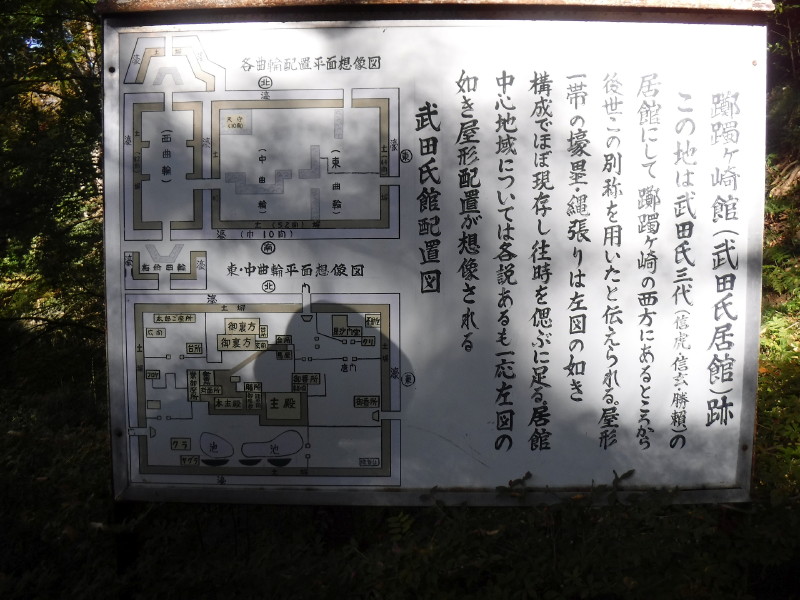 躑躅ヶ崎館(武田氏居館)跡
この地は武田氏三代(信虎・信玄・勝頼)の
居館にして躑躅ヶ崎の西方にあるところから
後世この別称を用いたと伝えられる。屋形
一帯の壕塁・縄張りは左図の如き
構成でほぼ現存し往時を偲ぶに足る。居館
中心地域については各説あるも一応左図の
如き屋形配置が想像される
武田氏館配置図
各曲輪配置平面想像図
北
濠
土塀
濠
(西曲輪)
天守
(中曲輪)
(東曲輪)
濠
東
濠(巾10間)
南
東・中曲輪平面想像図
北
濠
土塀
御裏方
御裏方
台所
本主殿
主殿
御番所
庭門
毘沙門堂
クラ
池
池
濠
東